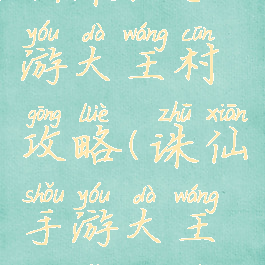 yóu dà wáng cūn
游大王村
gōng lüè zhū xiān
攻略(诛仙
shǒu yóu dà wáng
手游大王